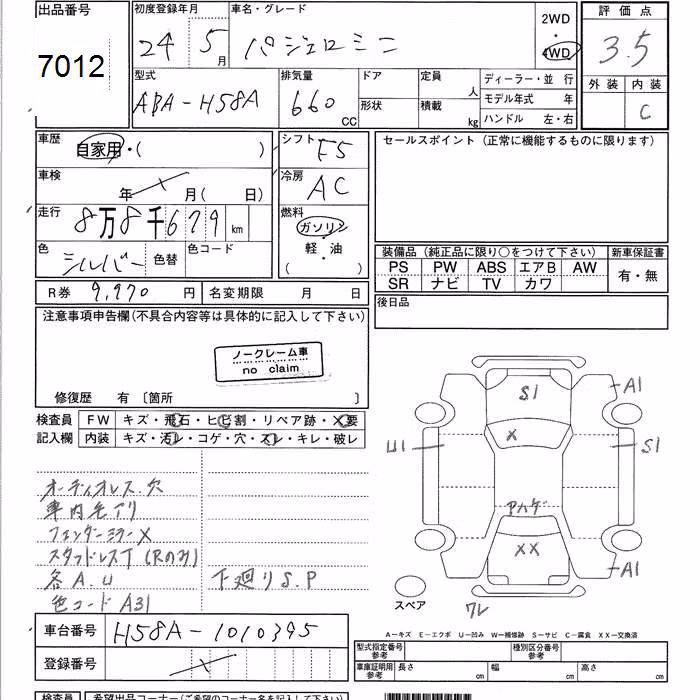 出品番号
7012
初度登録年月
24 5月
車名・グレード
パジェロミニ
2WD
・
4WD
評価点
3.5
外装 内装
C
型式
ABA-H58A
排気量
660 CC
ドア
形状
定員 人
積載 kg
ディーラー・並 行
モデル年式 年
ハンドル 左・右
車歴
自家用・( )
車検
年 月( 日)
走行
8万8千679 km
色
シルバー 色替
色コード
R券 9,970 円
名変期限 月 日
シフト
F5
冷房
AC
燃料
ガソリン
・
軽・油
( )
セールスポイント(正常に機能するものに限ります)
装備品(純正品に限り○をつけて下さい)
新車保証書
PS PW ABS エアB AW
SR ナビ TV カワ
有・無
後日品
注意事項申告欄(不具合内容等は具体的に記入して下さい)
ノークレーム車
no claim
修復歴 有〔箇所 〕
検査員
記入欄
FW キズ・飛石・ヒビ割・リペア跡・X要
内装 キズ・汚レ・コゲ・穴・スレ・キレ・破レ
オーディオレス.欠
車内毛アリ
フェンダーミラーX
スタッドレスT(Rのみ)
各A.U
下廻りS.P
色コードA31
S1
A1
X
U1
S1
アハゲ
XX
A1
ワレ
スペア
A-キズ E-エクボ U-凹み W-補修跡 S-サビ C-腐食 XX-交換済
車台番号 H58A-1010395
登録番号
型式指定番号
参考
種別区分番号
参考
車庫証明用
参考
長さ 幅 高さ
検査員
希望出品コーナー(ご希望のコーナー名を記入下さい)